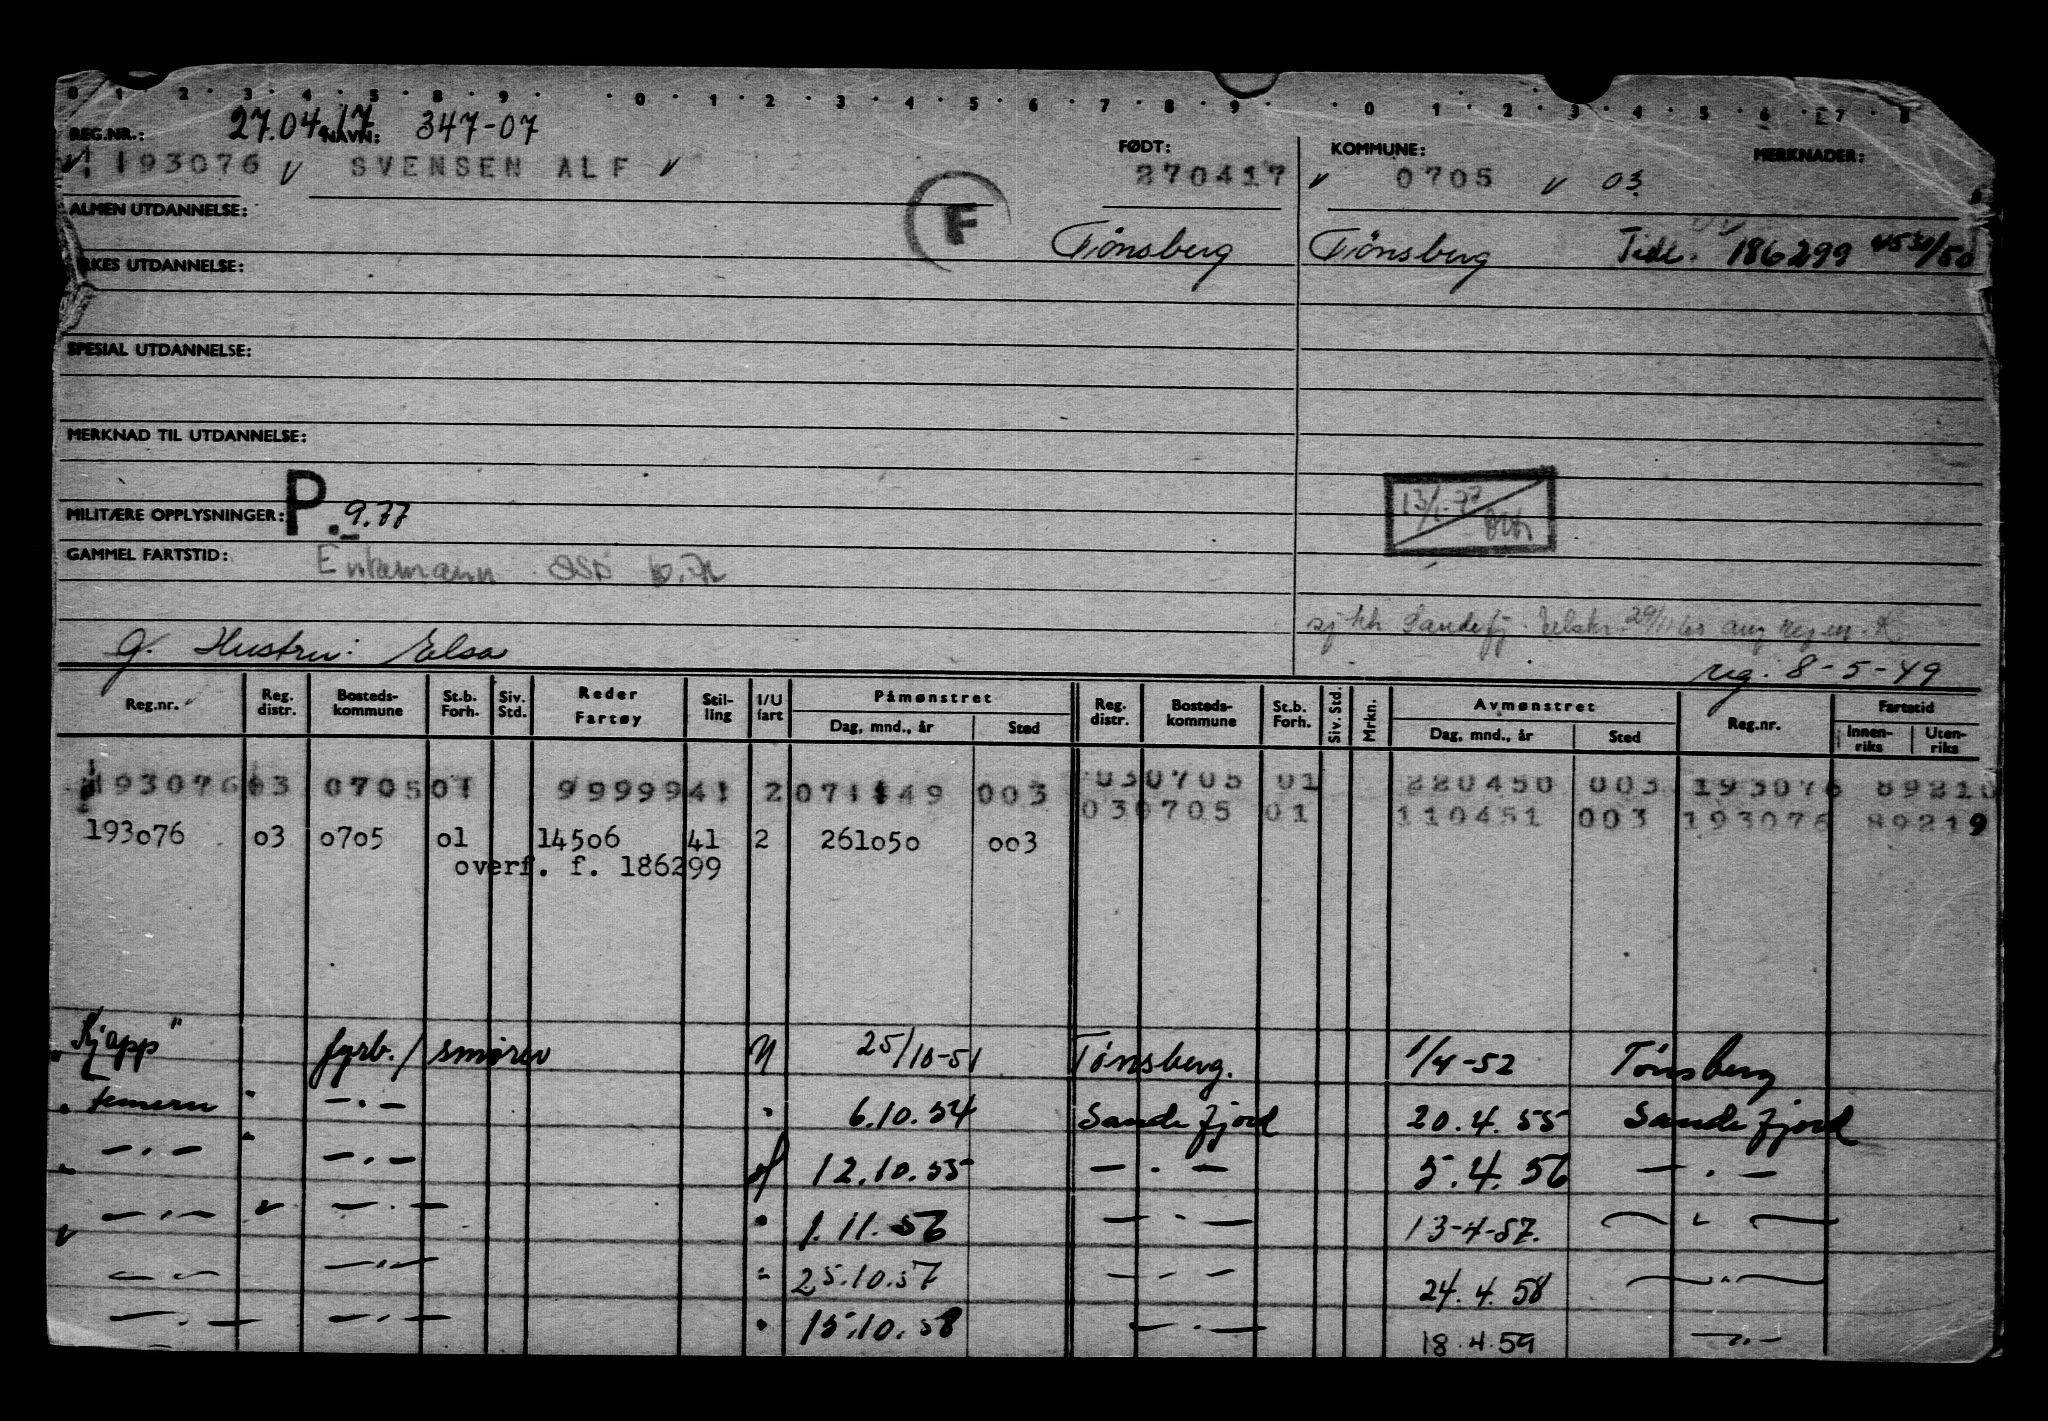 0 1 2 3 4 5 8 9 0 1 2 3 4 5 6 7 8 9 0 1 2 3 4 5 6 7 8
REG.NR.: 27.04.17 NAVN: 347-07 FØDT: KOMMUNE: MERKNADER:
193076 v SVENSEN ALF v 270417 v 0705 v 03
F
ALMEN UTDANNELSE: Tönsberg Tönsberg Tidl. 186299
YRKES UTDANNELSE:
SPESIAL UTDANNELSE:
MERKNAD TIL UTDANNELSE:
MILITÆRE OPPLYSNINGER: P. 9.77
13/1-77
GAMMEL FARTSTID: Enkemann
G. Hustru: Elsa
reg: 8-5-49
Reg.nr. Reg. distr. Bosteds-kommune St.b. Forh. Siv. Std. Reder Fartøy Stil-ling I/U fart Påmønstret Dag, mnd., år Sted Reg. distr. Bosteds-kommune St.b. Forh. Siv. Std. Mrkn. Avmønstret Dag, mnd., år Sted Reg.nr. Fartstid Innen-riks Uten-riks
193076 03 0705 01 99999 41 2 071149 003 030705 01 220450 003 193076 89210
030705 01 110451 003 193076 89219
193o76 o3 o7o5 o1 145o6 41 2 261o5o oo3
overf. f. 186299
"Kjapp" fyrb. / smörer U 25/10-51 Tönsberg. 1/4-52 Tönsberg
" -.- " 6.10.54 Sandefjord 20.4.55 Sandefjord
" -.- " -.- 12.10.55 -.- 5.4.56 -.-
-.- " -.- " 1.11.56 -.- 13-4-57. -.-
-.- -.- " 25.10.57 -.- 24.4.58 -.-
-.- -.- " 15.10.58 -.- 18.4.59 -.-